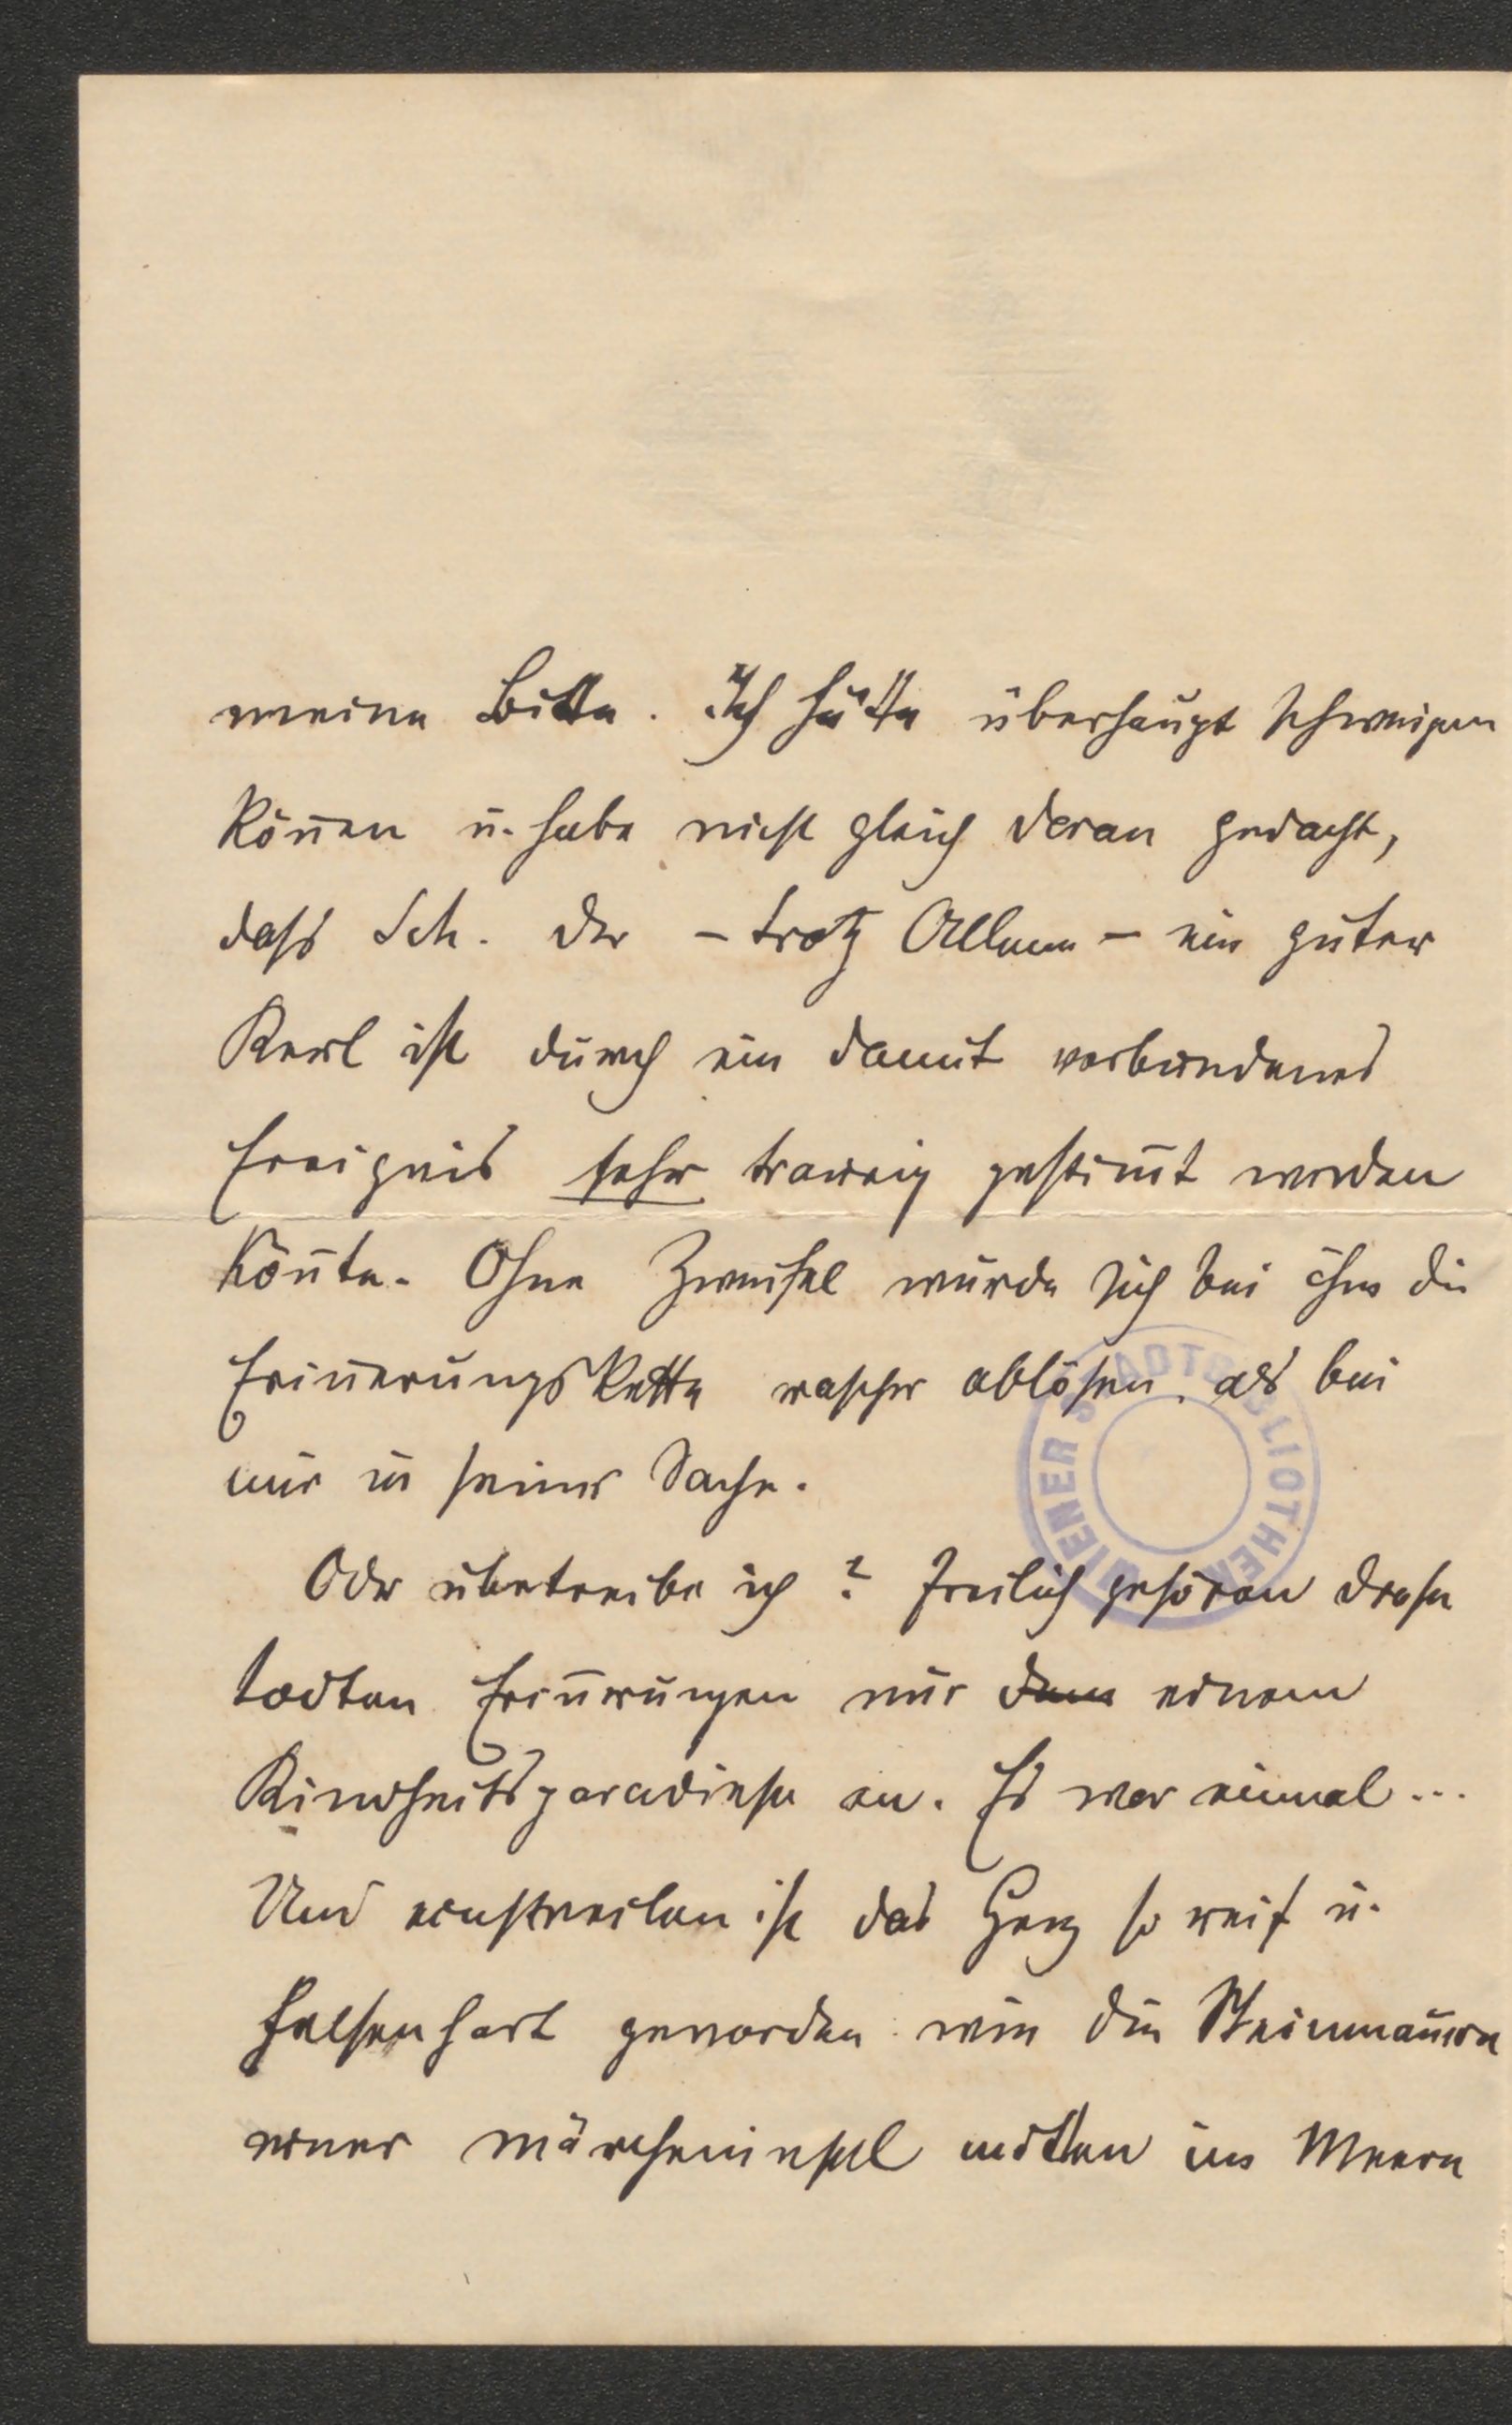 meine Bitte. Ich hätte überhaupt schweigen
kön̄en u. habe nicht gleich daran gedacht,
dass Sch. der – trotz Allem – ein guter
Kerl ist durch ein damit verbundenes
Ereignis sehr traurig gestim̄t werden
kön̄te. Ohne Zweifel würde sich bei ihm die
Erin̄erungskette rascher ablösen als bei
mir in seiner Sache.
Oder übertreibe ich? Freilich gehören diese
todten Erin̄erungen nur dem einem
Kindheitsparadiese an. Es war einmal...
Und einstweilen ist das Herz so reif u.
felsenhart geworden wie die Steinmauern
einer Märcheninsel mitten im Meere
WIENER STADTBIBLIOTHEK